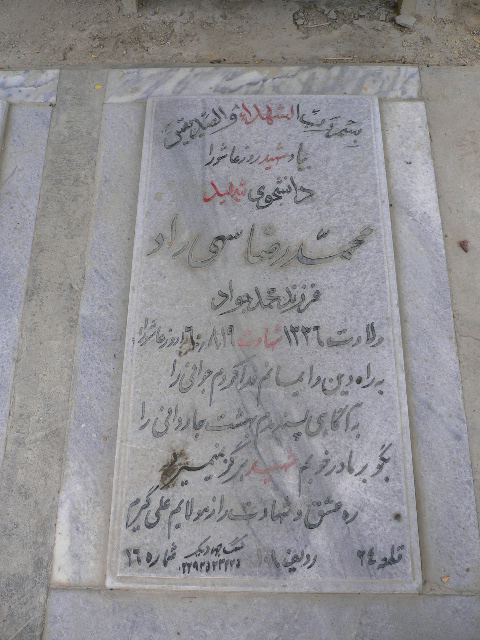 بسم رب الشهداء والصدیقین
بیاد شهید روز عاشورا
دانشجوی شهید
محمدرضا سمی راد
فرزند محمد جواد
ولادت ۱۳۳۶ شهادت روز عاشورا
به راه دین و ایمانم فدا کردم جوانی را
به آگاهی پسندیدم بهشت جاودانی را
بگو بر مادر خوبم شهید هرگز نمیمیرد
ره عشق و شهادت را ز مولایم علی گیرم
قطعه ۲۴ ردیف شماره ۱۶